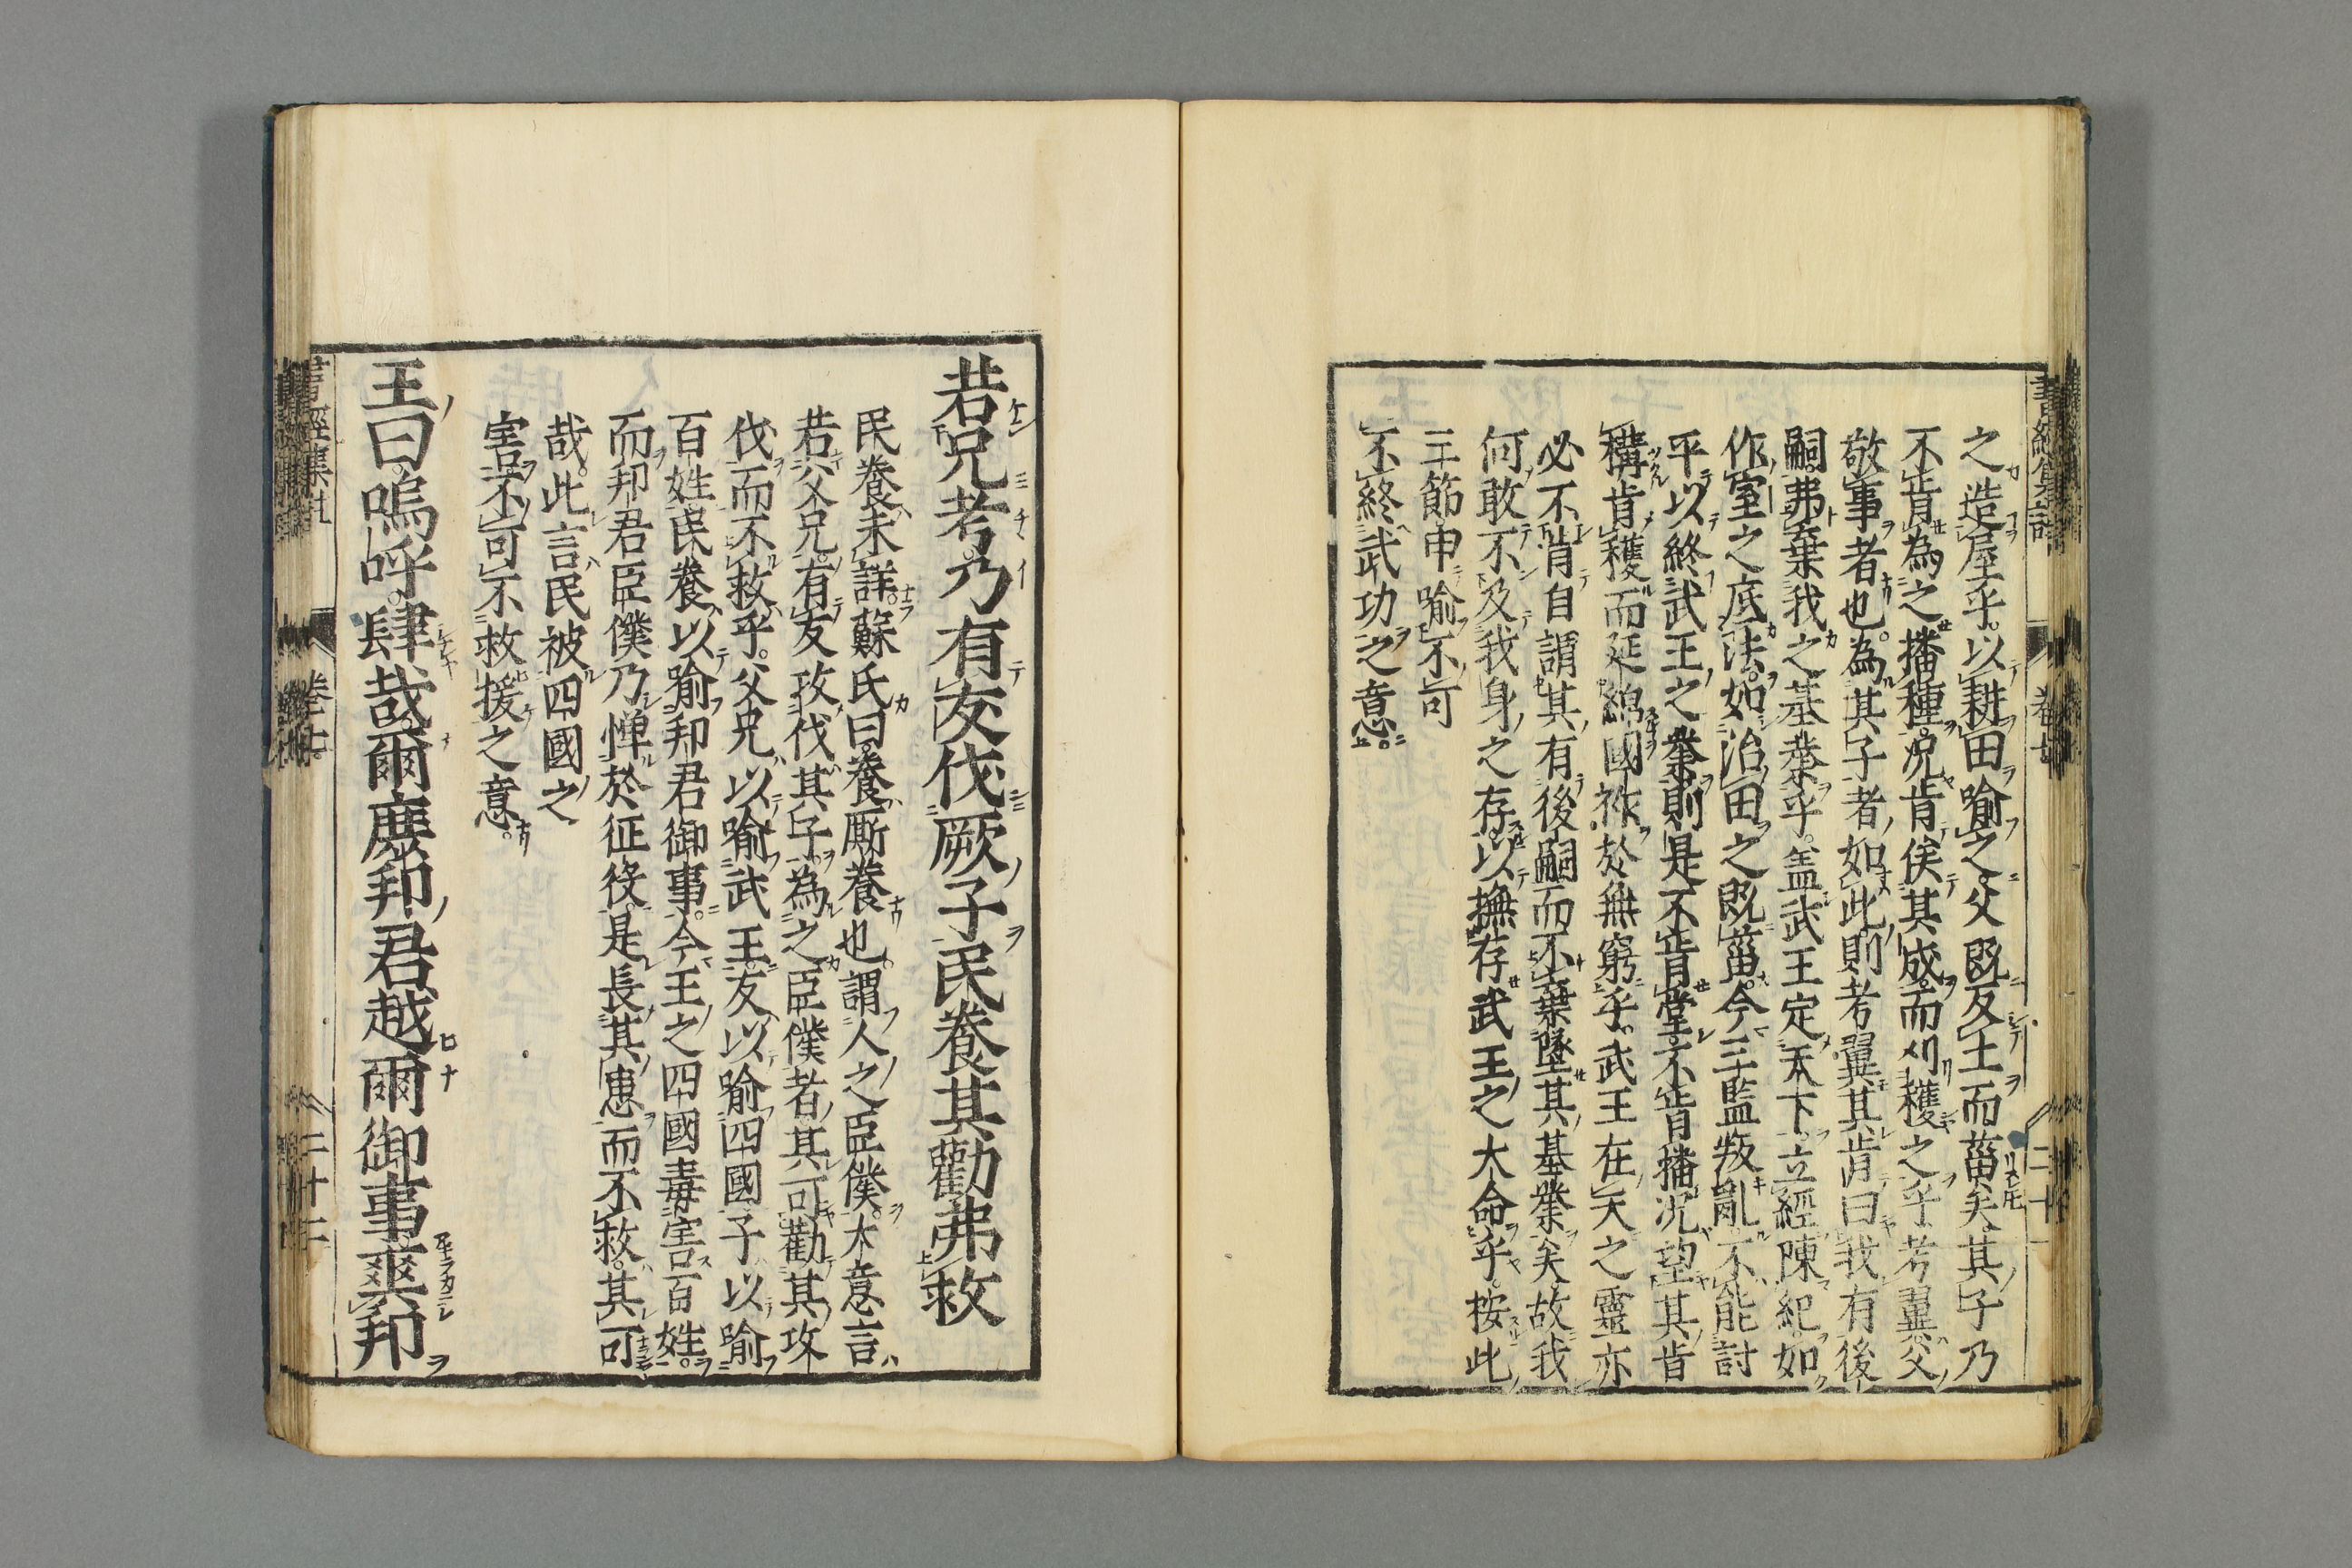 之造屋乎。以耕田喻之。父既反土而菑矣。其子乃
不肯為之播種。况肯俟其成。而刈穫之乎。考翼。父
敬事者也。為其子者。如此。則考翼其肯曰我有後
嗣。弗棄我之基業乎。盖武王定天下。立經陳紀。如
作室之底法。如治田之既菑。今三監叛亂。不能討
平以終武王之業。則是不肯堂。不肯播。况望其肯
構肯穫而延綿國祚於無窮乎。武王在天之靈亦
必不肯自謂其有後嗣而不棄墜其基業矣。故我
何敢不及我身之存。以撫存武王之大命乎。按此
三節申喻不可
不終武功之意。
若兄考。乃有友伐厥子。民養其勸弗救
民養未詳。蘇氏曰。養。厮養也。謂人之臣僕。大意言
若父兄。有友攻伐其子。為之臣僕者。其可勸其攻
伐而不救乎。父兄以喻武王。友以喻四國。子以喻
百姓。民養以喻邦君御事。今王之四國毒害百姓。
而邦君臣僕乃憚於征役。是長其患而不救。其可
哉。此言民被四國之
害。不可不救援之意。
王曰。嗚呼。肆哉爾庶邦君越爾御事。爽邦
卷七
二十二